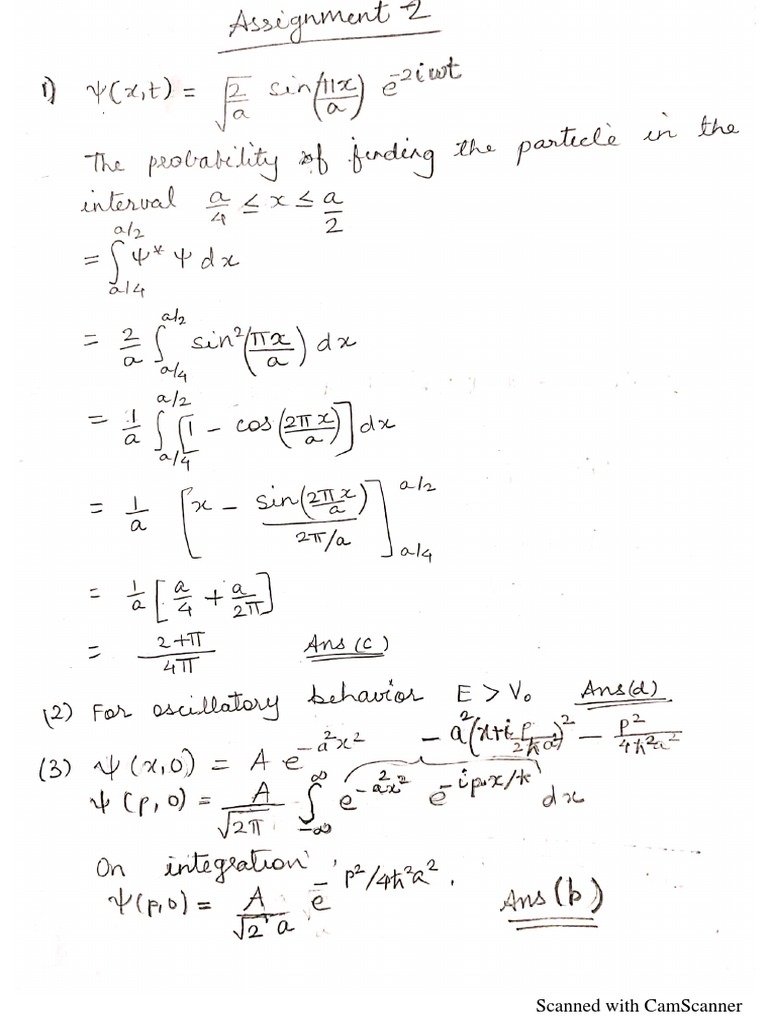 Assignment 2
1) Ψ(x,t) = √(2/a) sin(πx/a) e^(-2iωt)
The probability of finding the particle in the
interval a/4 ≤ x ≤ a/2
= ∫_(a/4)^(a/2) Ψ* Ψ dx
= 2/a ∫_(a/4)^(a/2) sin²(πx/a) dx
= 1/a ∫_(a/4)^(a/2) [1 - cos(2πx/a)] dx
= 1/a [x - sin(2πx/a)/(2π/a)]_(a/4)^(a/2)
= 1/a [a/4 + a/2π]
= (2+π)/4π Ans (c)
(2) For oscillatory behavior E > V₀ Ans(d)
- a²(x+i p/2ħa²)² - p²/4ħ²a²
(3) Ψ(x,0) = A e^(-a²x²)
Ψ(p,0) = A/√2π ∫_(-∞)^(∞) e^(-a²x²) e^(-ip.x/ħ) dx
On integration,
Ψ(p,0) = A/(√2 a) e^(-p²/4ħ²a²). Ans (b)
Scanned with CamScanner